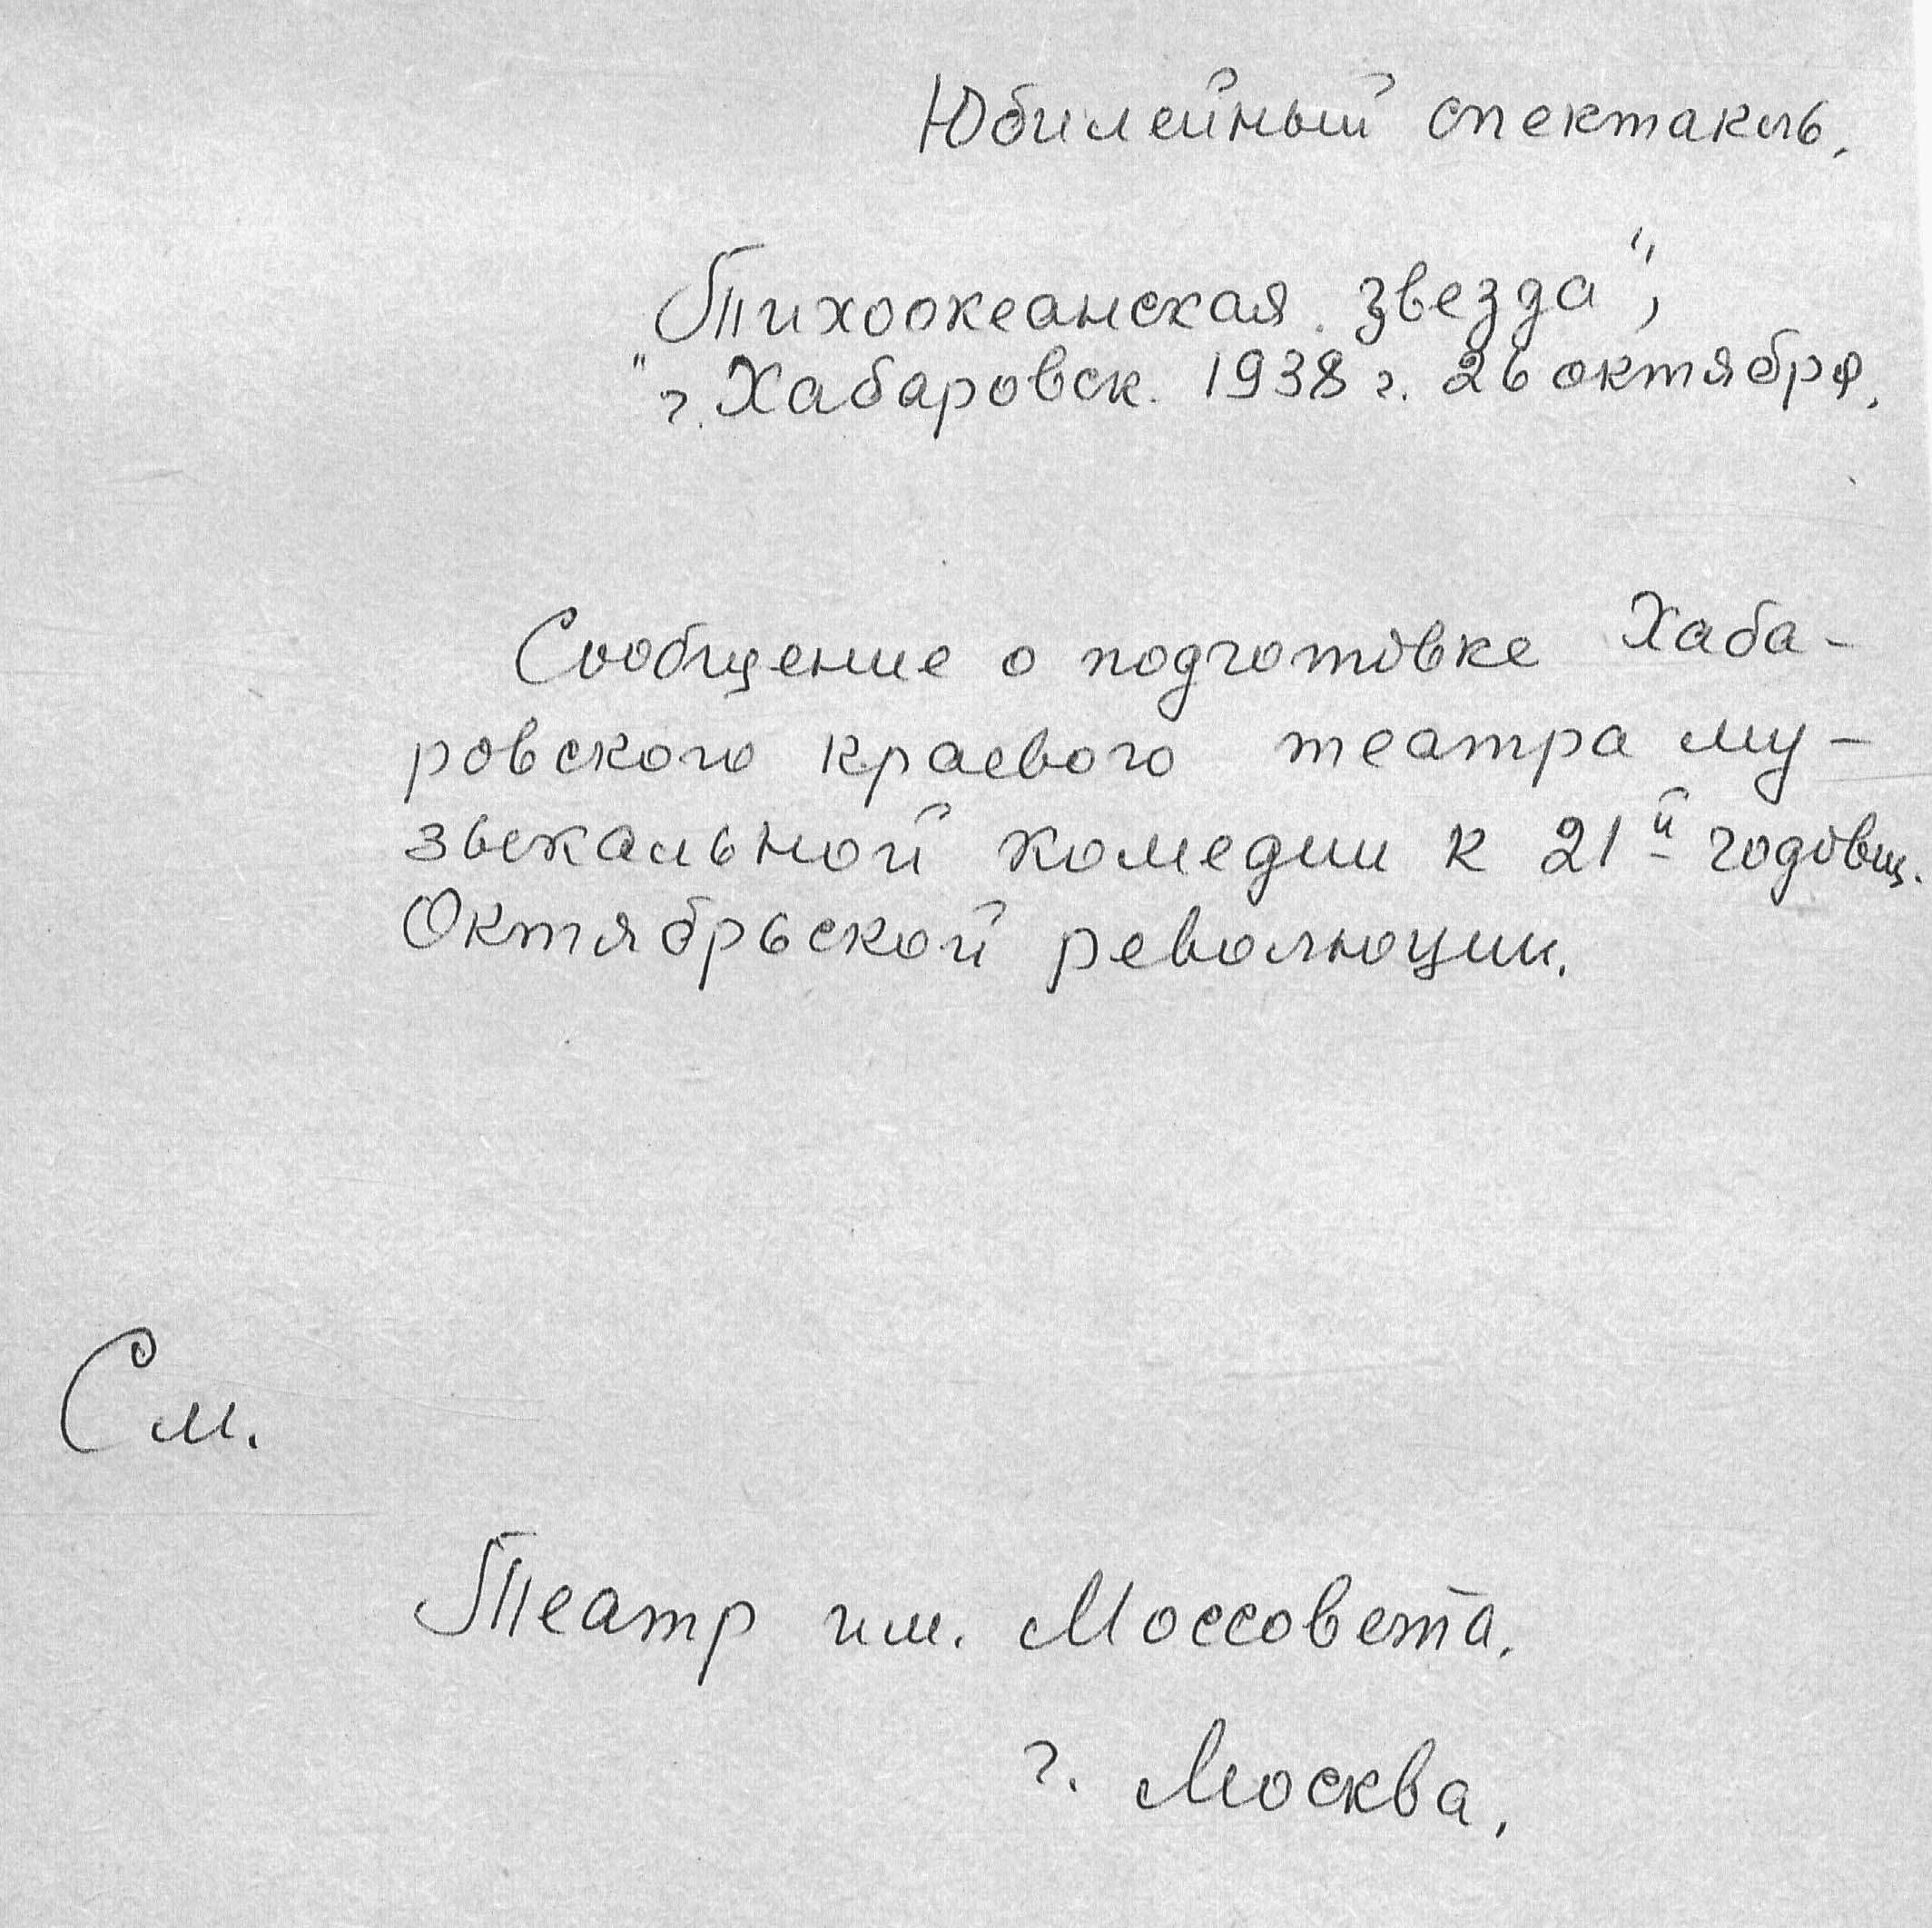 Юбилейный спектакль.
"Тихоокеанская звезда",
г. Хабаровск. 1938 г. 26 октября.
Сообщение о подготовке Хаба-
ровского краевого театра му-
зыкальной комедии к 21й годовщ.
Октябрьской революции.
См.
Театр им. Моссовета.
г. Москва.